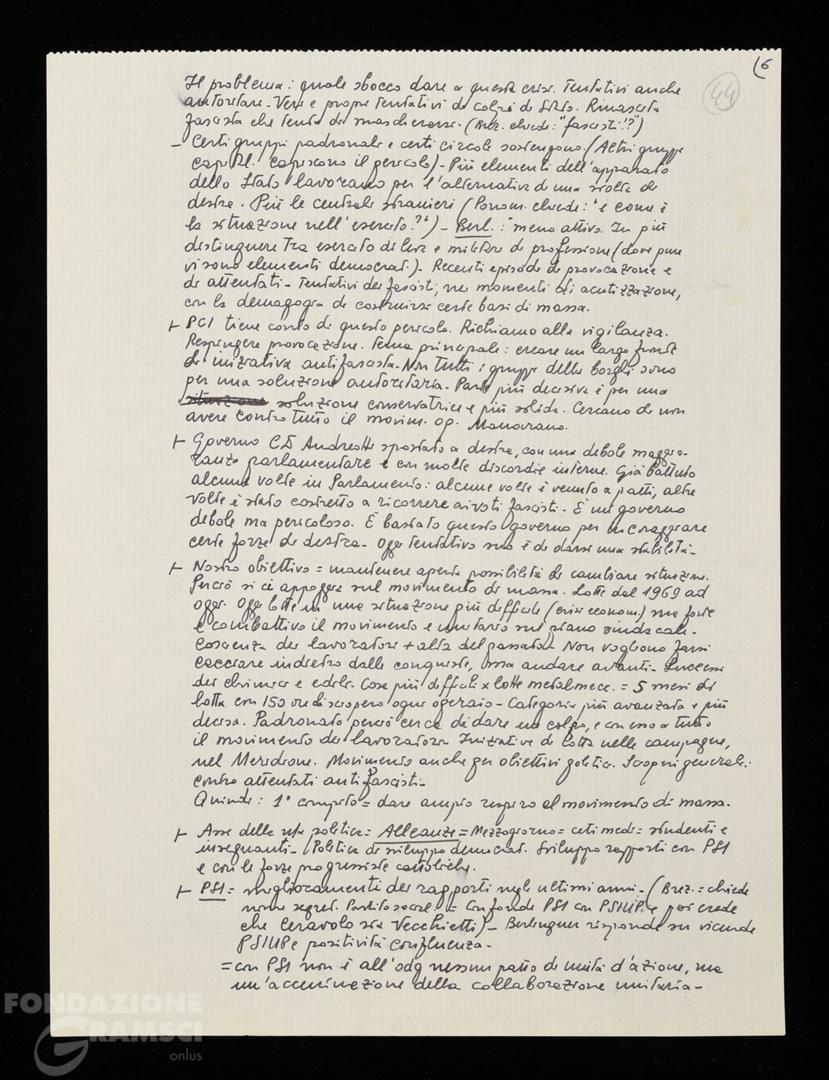 (6
44
Il problema: quale sbocco dare a questa crisi. Tentativi anche
autoritari. Veri e propri tentativi di colpi di Stato. Rinascita
fascista che tenta di mascherarsi. (Brez. chiede: "fascisti!?")
- Certi gruppi padronali e certi circoli sostengono. (Altri gruppi
capit. capiscono il pericolo) - Più elementi dell'apparato
dello Stato lavorano per l'alternativa di una svolta di
destra. Più le centrali straniere (Ponom. chiede: "e come è
la situazione nell'esercito?") - Berl.: "meno attivo. In più
distinguere tra esercito di leva e militari di professione (dove pure
vi sono elementi democrat.) - Recenti episodi di provocazione e
di attentati - Tentativi dei fascisti, nei momenti di acutizzazione,
con la demagogia di costruirsi certe basi di massa.
+ PCI tiene conto di questo pericolo. Richiamo alla vigilanza.
Respingere provocazione. Tema principale: creare un largo fronte
di iniziativa antifascista. Non tutti i gruppi della borghi sono
per una soluzione autoritaria. Parte più decisiva è per una
soluzione conservatrice e più solida. Cercano di non
avere contro tutto il movim. op. Manovrano.
+ Governo CD Andreotti spostato a destra, con una debole maggio-
ranza parlamentare e con molte discordie interne. Già battuto
alcune volte in Parlamento: alcune volte è venuto a patti, altre
volte è stato costretto a ricorrere ai voti fascisti - È un governo
debole ma pericoloso. È bastato questo governo per incoraggiare
certe forze di destra - Oggi tentativo suo è di darsi una stabilità -
+ Nostro obiettivo = mantenere aperta possibilità di cambiare situazione.
Perciò si ci appoggia sul movimento di massa. Lotte dal 1969 ad
oggi. Oggi lotte in una situazione più difficile (crisi econom.) ma forte
e combattivo il movimento e unitario sul piano sindacale.
Coscienza dei lavoratori + alta del passato. Non vogliono farsi
cacciare indietro dalle conquiste, ma andare avanti - Successi
dei chimici e edili. Cose più difficili x lotte metalmecc. = 5 mesi di
lotta con 150 ore di sciopero ogni operaio - Categoria più avanzata e più
decisa. Padronato perciò cerca di dare un colpo, e con esso a tutto
il movimento dei lavoratori. Iniziative di lotta nelle campagne,
nel Meridione. Movimento anche per obiettivi politici. Scioperi generali
contro attentati antifascisti -
Quindi: 1° compito = dare ampio respiro al movimento di massa.
+ Asse della politica = Alleanze = Mezzogiorno = ceti medi = studenti e
insegnanti - (Politica di sviluppo democrat. Sviluppo rapporti con PSI
e con le forze progressiste cattoliche.
+ PSI = miglioramenti dei rapporti negli ultimi anni - (Brez. = chiede
nome segret. Partito social. = Confonde PSI con PSIUP e poi crede
che Ceravolo sia Vecchietti) - Berlinguer risponde su vicende
PSIUP e positività confluenza -
= con PSI non è all'odg nessun patto di unità d'azione, ma
un'accentuazione della collaborazione unitaria -
FONDAZIONE
GRAMSCI
onlus